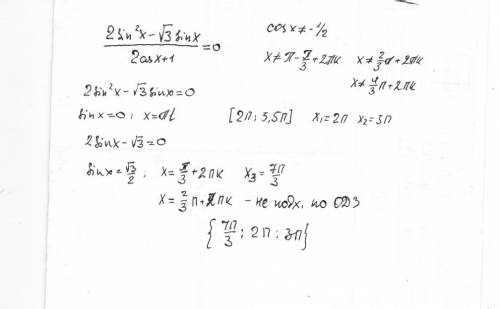 2sin²x-√3sinx / 2cosx+1 = 0
cosx≠-1/2
x≠π-π/3+2πк x≠2/3π+2πк
x≠4/3π+2πк
2sin²x-√3sinx=0
sinx=0; x=πl [2π; 3,5π] x₁=2π x₂=3π
2sinx-√3=0
sinx=√3/2; x=π/3+2πк x₃=7π/3
x=2/3π+2πк - не подх. по ОДЗ
{7π/3; 2π; 3π}